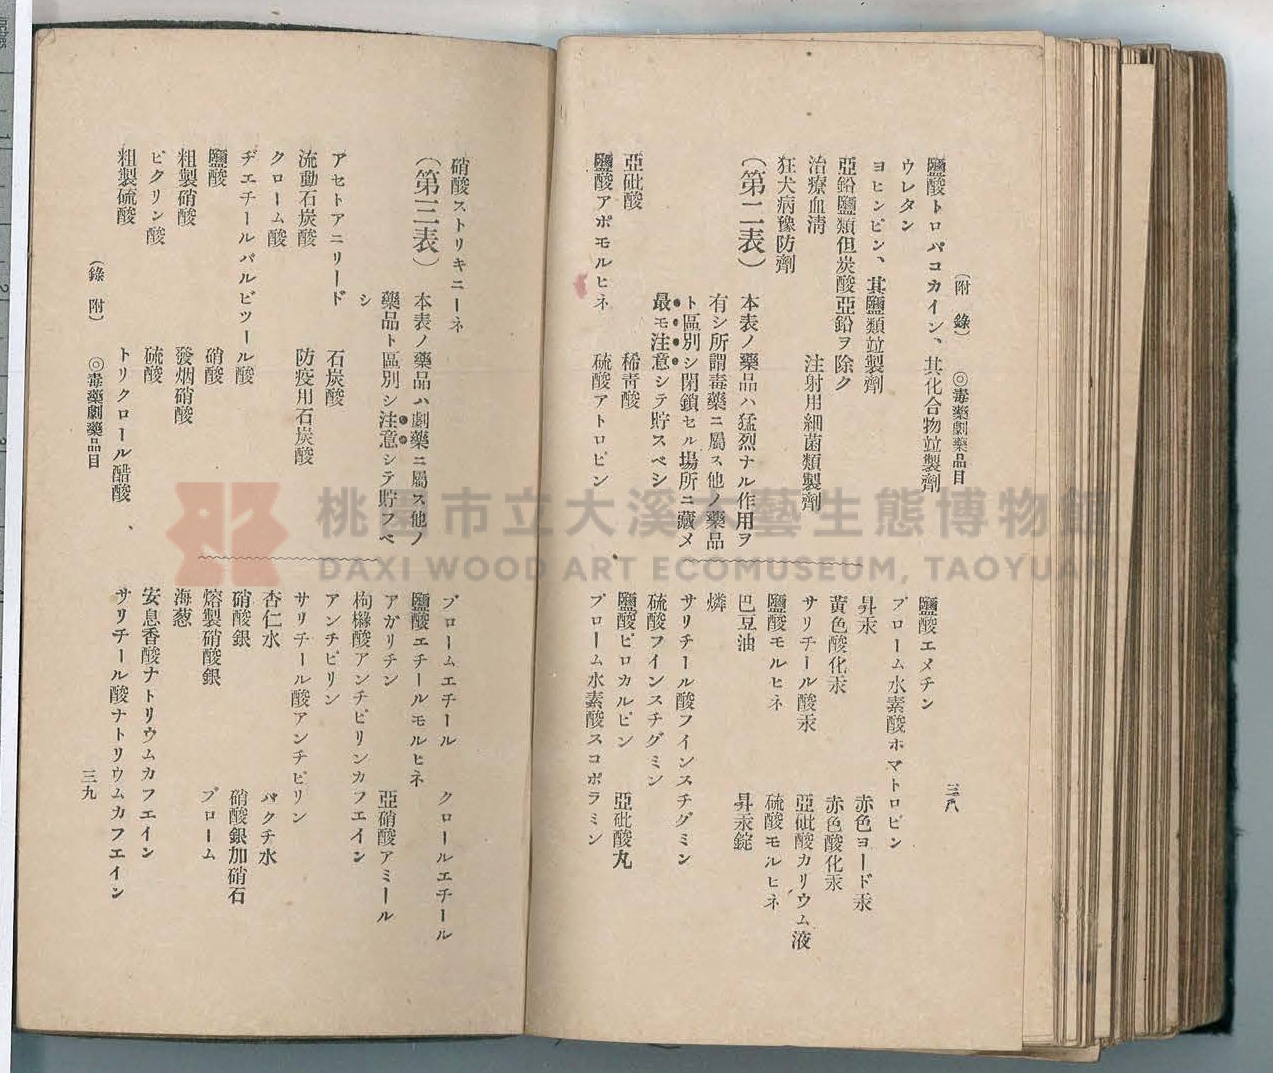 (附錄) ◎毒藥劇藥品目 三八
鹽酸トロパコカイン、其化合物竝製劑
ウレタン
ヨヒンビン、其鹽類竝製劑
亞鉛鹽類但炭酸亞鉛ヲ除ク
治療血淸 注射用細菌類製劑
狂犬病豫防劑
(第二表) 本表ノ藥品ハ猛烈ナル作用ヲ
有シ所謂毒藥ニ屬ス他ノ藥品
ト區別シ閉鎖セル場所ニ藏メ
最モ注意シテ貯スベシ
亞砒酸 稀靑酸
鹽酸アポモルヒネ 硫酸アトロピン
鹽酸エメチン
ブローム水素酸ホマトロピン
昇汞 赤色ヨード汞
黃色酸化汞 赤色酸化汞
サリチール酸汞 亞砒酸カリウム液
鹽酸モルヒネ 硫酸モルヒネ
巴豆油 昇汞錠
燐
サリチール酸フインスチグミン
硫酸フインスチグミン
鹽酸ピロカルピン 亞砒酸丸
ブローム水素酸スコポラミン
硝酸ストリキニーネ
(第三表) 本表ノ藥品ハ劇藥ニ屬ス他ノ
藥品ト區別シ注意シテ貯フベ
シ
アセトアニリード 石炭酸
流動石炭酸 防疫用石炭酸
クローム酸
ヂエチールバルビツール酸
鹽酸 硝酸
粗製硝酸 發烟硝酸
ピクリン酸 硫酸
粗製硫酸 トリクロール醋酸、
ブロームエチール クロールエチール
鹽酸エチールモルヒネ
アガリチン 亞硝酸アミール
枸櫞酸アンチピリンカフエイン
アンチピリン
サリチール酸アンチピリン
杏仁水 パクチ水
硝酸銀 硝酸銀加硝石
熔製硝酸銀 ブローム
海葱
安息香酸ナトリウムカフエイン
サリチール酸ナトリウムカフエイン
(錄附) ◎毒藥劇藥品目 三九
桃園市立大溪木藝生態博物館
DAXI WOOD ART ECOMUSEUM, TAOYUAN